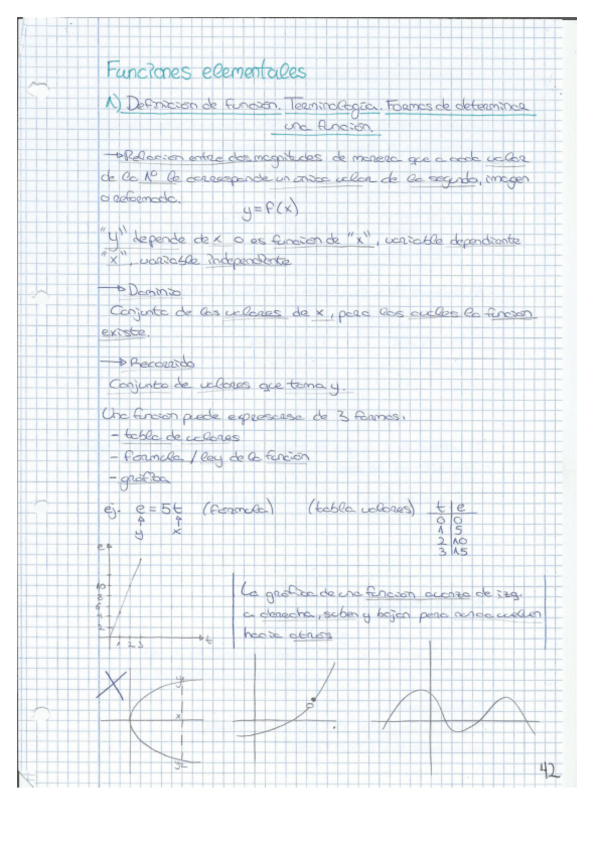 Funciones elementales
1) Definición de función. Terminología. Formas de determinar
una función.
→ Relación entre dos magnitudes de manera que a cada valor
de la 1º le corresponde un único valor de la segunda, imagen
o
y = f(x)
"y" depende de x o es función de "x", variable dependiente
"x", variable independiente
→ Dominio
Conjunto de los valores de x, para los cuales la función
existe.
→ Recorrido
Conjunto de valores que toma y.
Una función puede expresarse de 3 formas.
- tabla de valores
- formula / ley de la función
- gráfica
ej. e = 5t (formula) (tabla valores) t e
y x
0 0
1 5
2 10
3 15
e
10
8
6
4
2
1 2 3 t
La gráfica de una función avanza de izq.
a derecha, suben y bajan pero nunca vuelven
hacia atras
X y
x
y
42